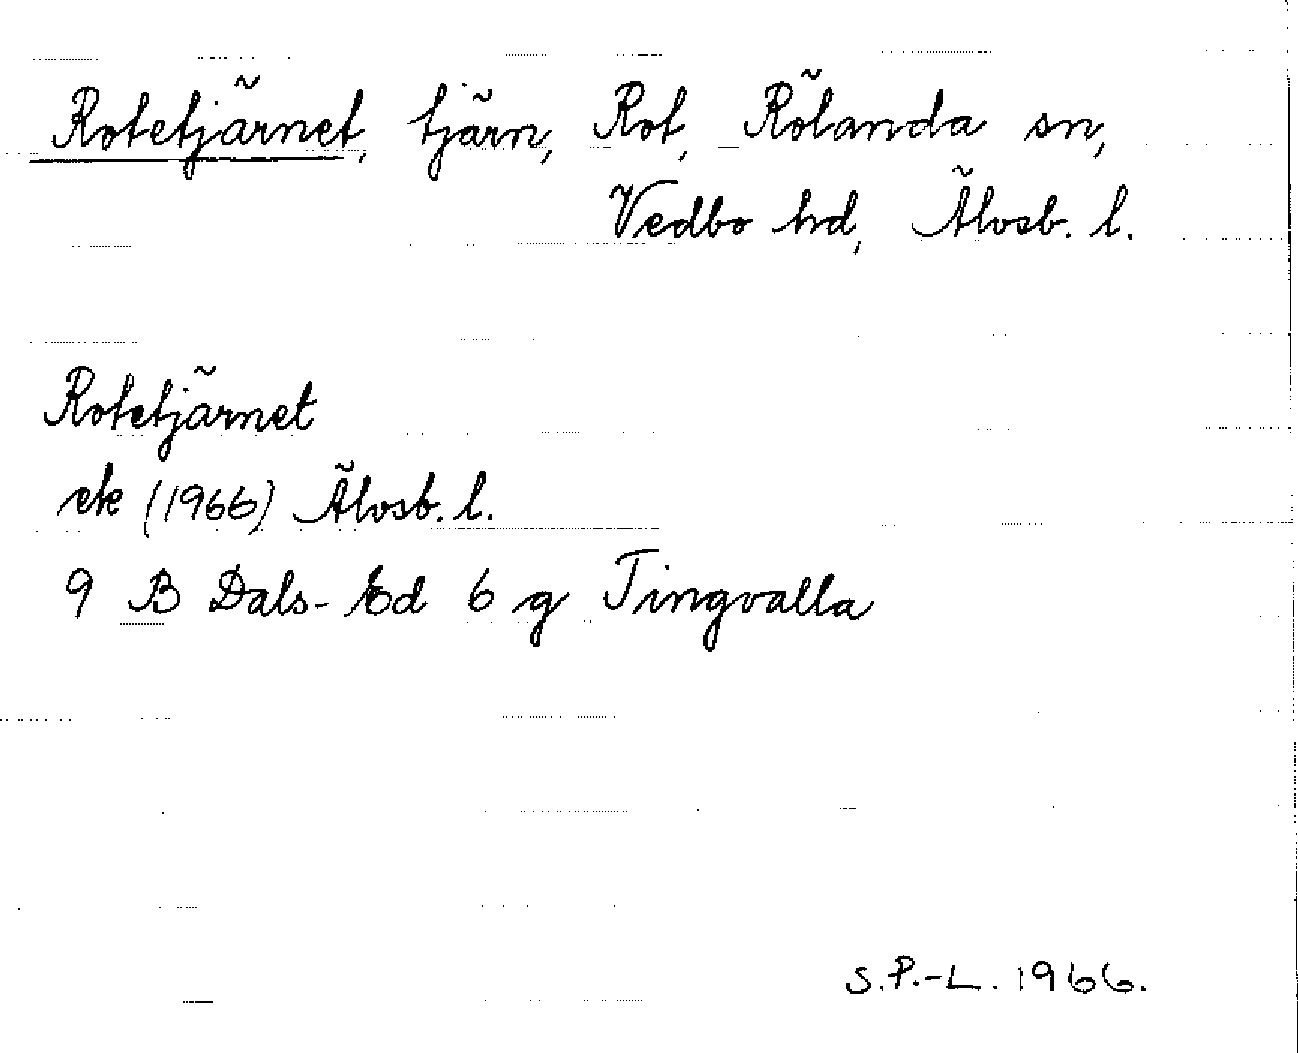 Rotetjärnet, tjärn, Rot, Rölanda sn,
Vedbo hd, Älvsb. l.
Rotetjärnet
ek (1966) Älvsb. l.
9 B Dals-Ed 6 g Tingvalla
S.P.-L. 1966.